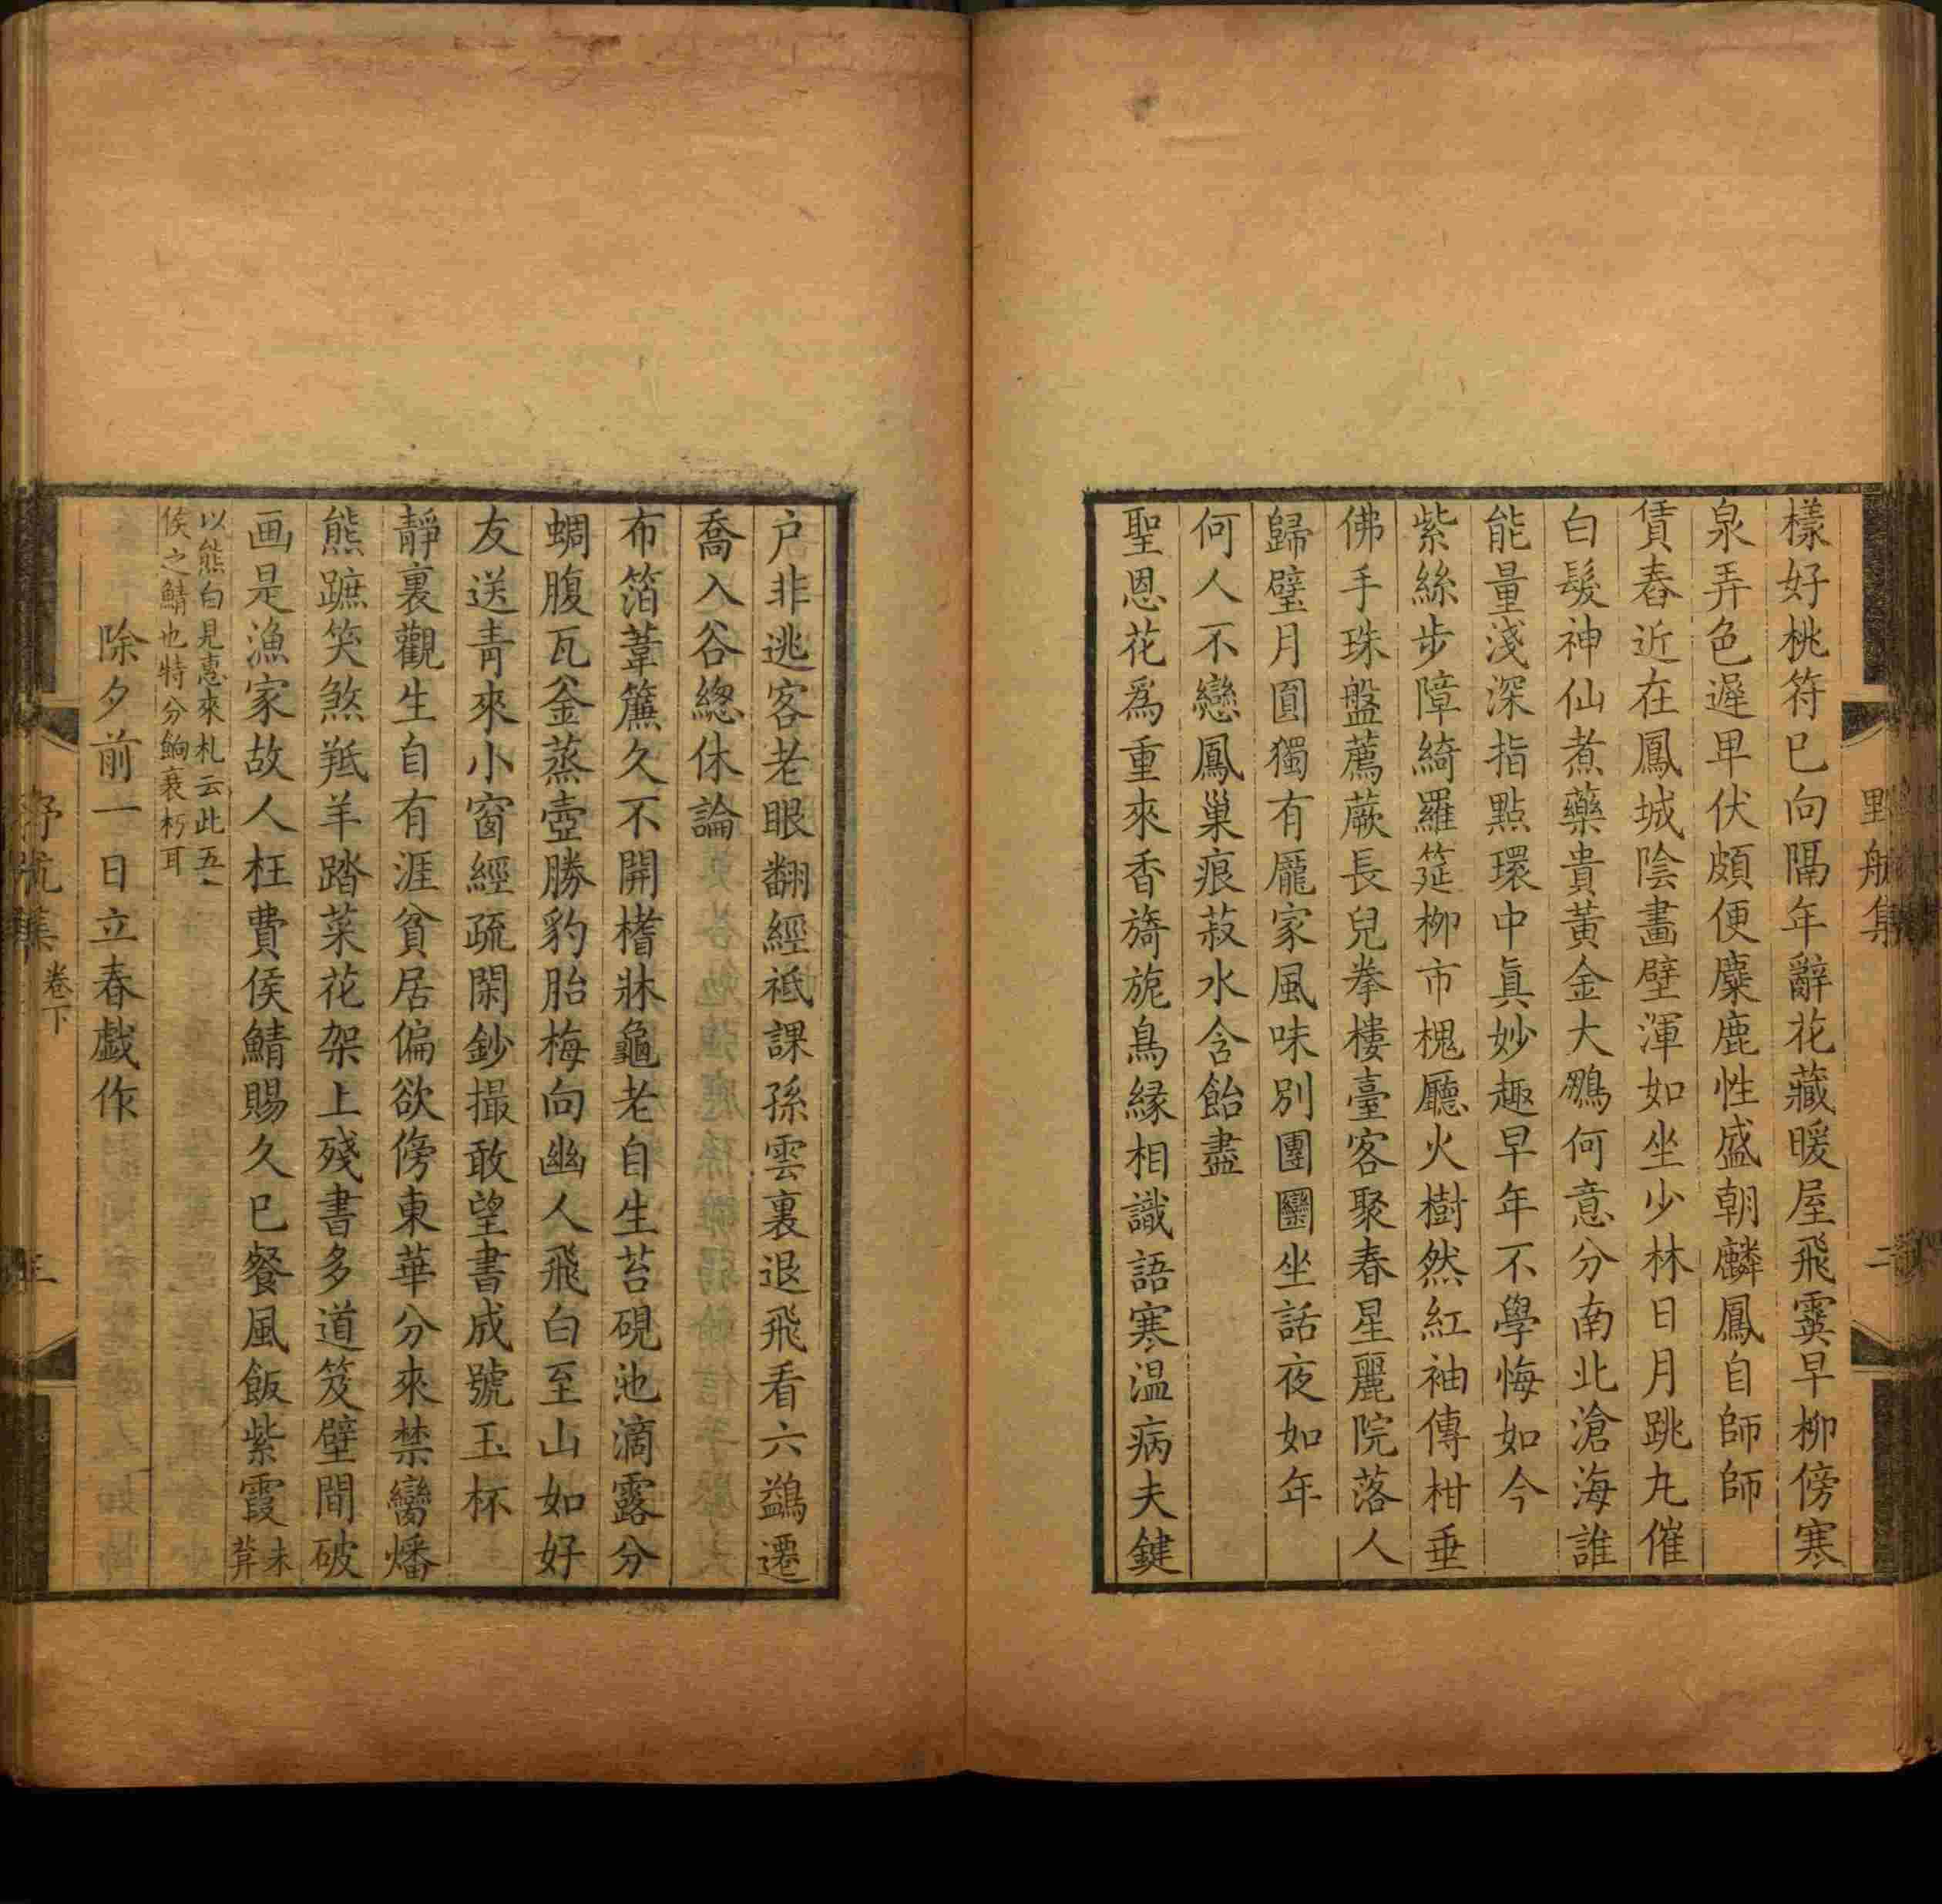 野航集
二
樣好桃符已向隔年辭花藏暖屋飛霙早柳傍寒
泉弄色遲早伏頗便麋鹿性盛朝麟鳳自師師
賃舂近在鳳城陰畫壁渾如坐少林日月跳丸催
白髮神仙煮藥貴黃金大鵬何意分南北滄海誰
能量淺深指點環中眞妙趣早年不學悔如今
紫絲步障綺羅筵柳市槐廳火樹然紅袖傳柑垂
佛手珠盤薦蕨長兒拳樓臺客聚春星麗院落人
歸璧月圓獨有龐家風味別團圞坐話夜如年
何人不戀鳳巢痕菽水含飴盡
聖恩花爲重來香旖旎鳥緣相識語寒温病夫鍵
户非逃客老眼翻經祗課孫雲裏退飛看六鷁遷
喬入谷緫休論
布箔葦簾久不開榰牀龜老自生苔硯池滴露分
蜩腹瓦釜蒸壺勝豹胎梅向幽人飛白至山如好
友送青來小窗經疏閑鈔撮敢望書成號玉杯
靜裏觀生自有涯貧居偏欲傍東華分來禁臠燔
熊蹠笑煞羝羊踏菜花架上殘書多道笈壁間破
画是漁家故人枉費侯鯖賜久已餐風飯紫霞 未葊
以熊白見惠來札云此五
侯之鯖也特分餉衰朽耳
除夕前一日立春戲作
卷下
三